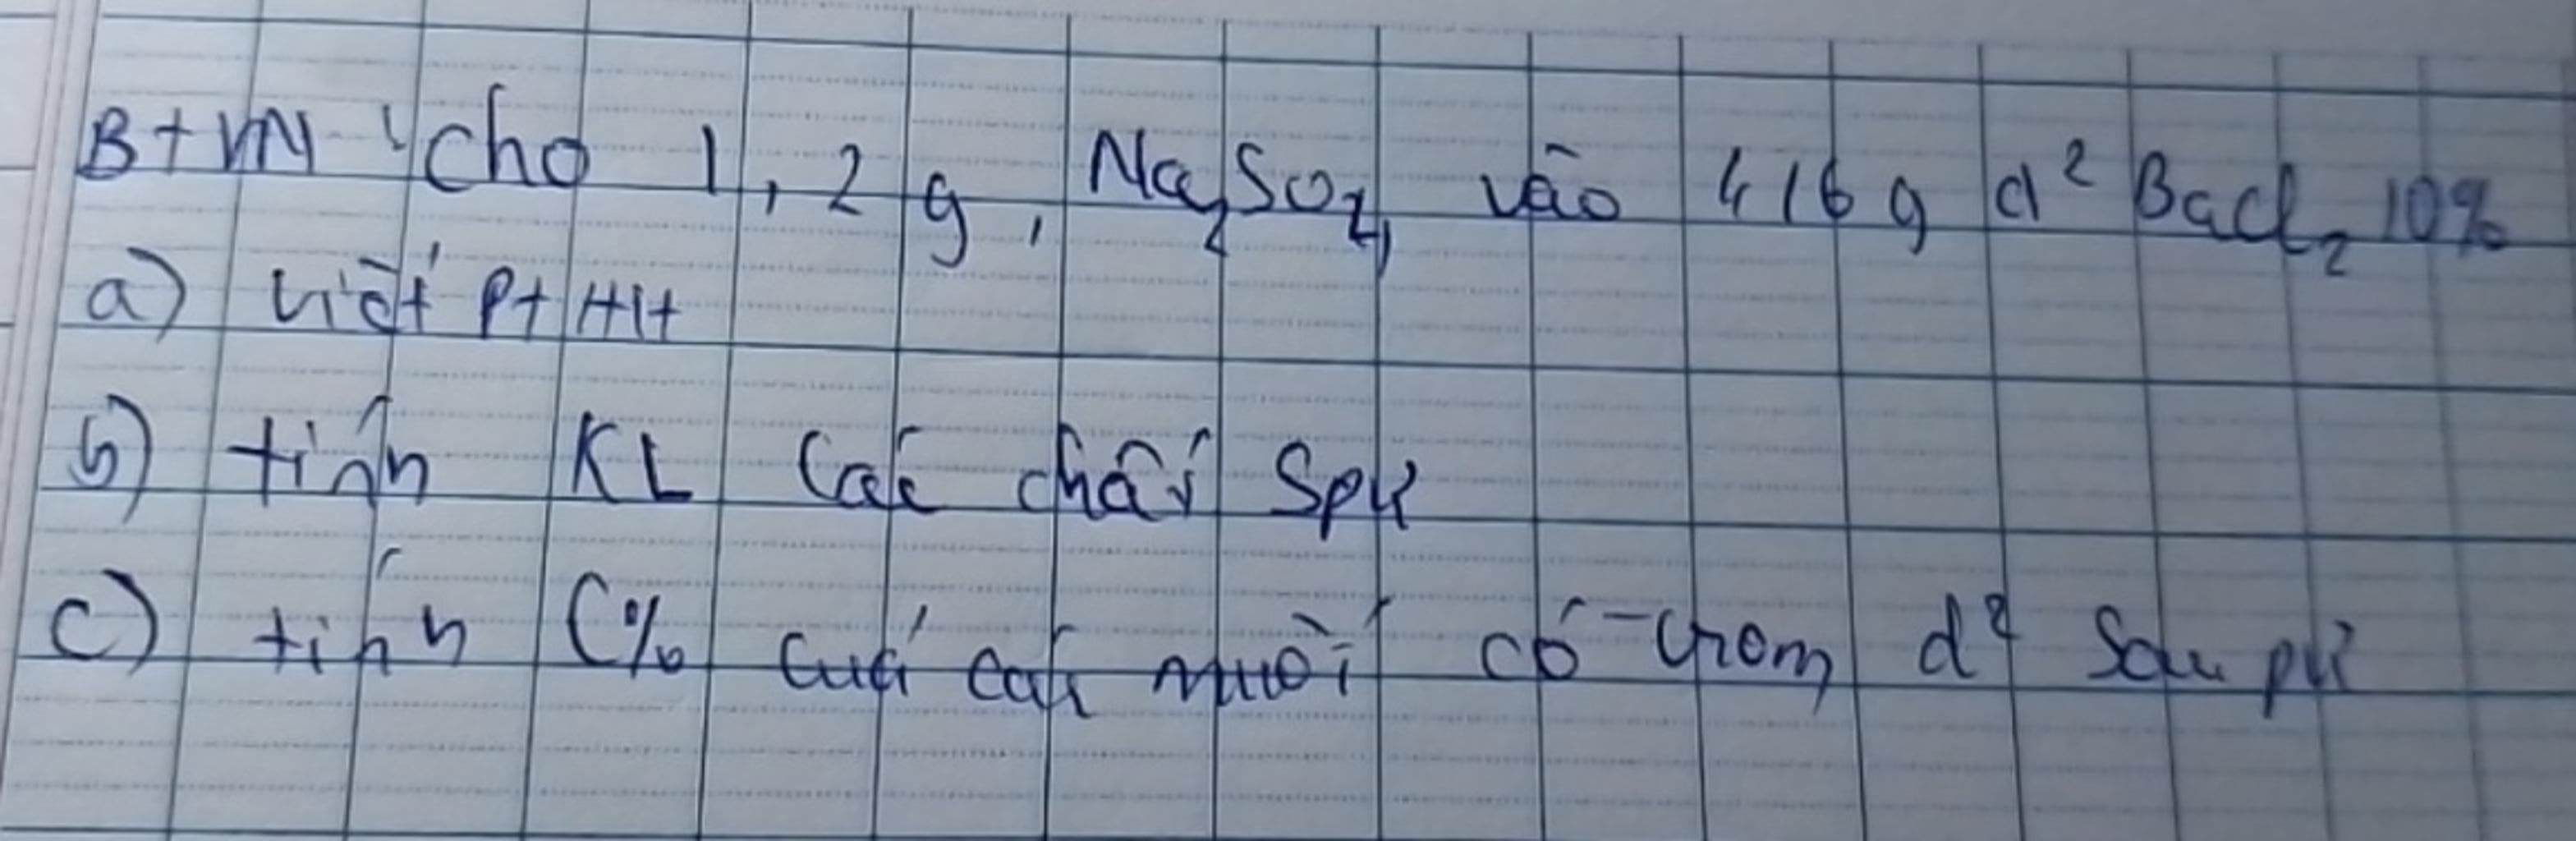 BtVN: Cho 1,2 g, Na2SO4 vào 416 g d² BaCl2 10%
a) viết PTHH
b) tính KL các chất Spứ
c) tính C% của các muối có trong d² sau pứ